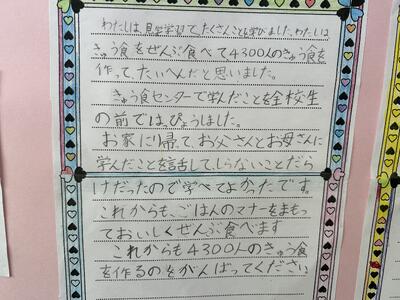 わたしは、見学学習で、たくさんことを学びました。わたしは
きゅう食をぜんぶ食べて、4300人のきゅう食を
作って、たいへんだと思いました。
きゅう食センターで学んだことを全校生
の前では、ぴょうしました。
お家に帰って、お父さんとお母さんに
学んだことを話して、しらないことだら
けだったので学べてよかったです。
これからも、ごはんのマナーをまもっ
ておいしくぜんぶ食べます
これからも4300人のきゅう食
を作るのをがんばってください